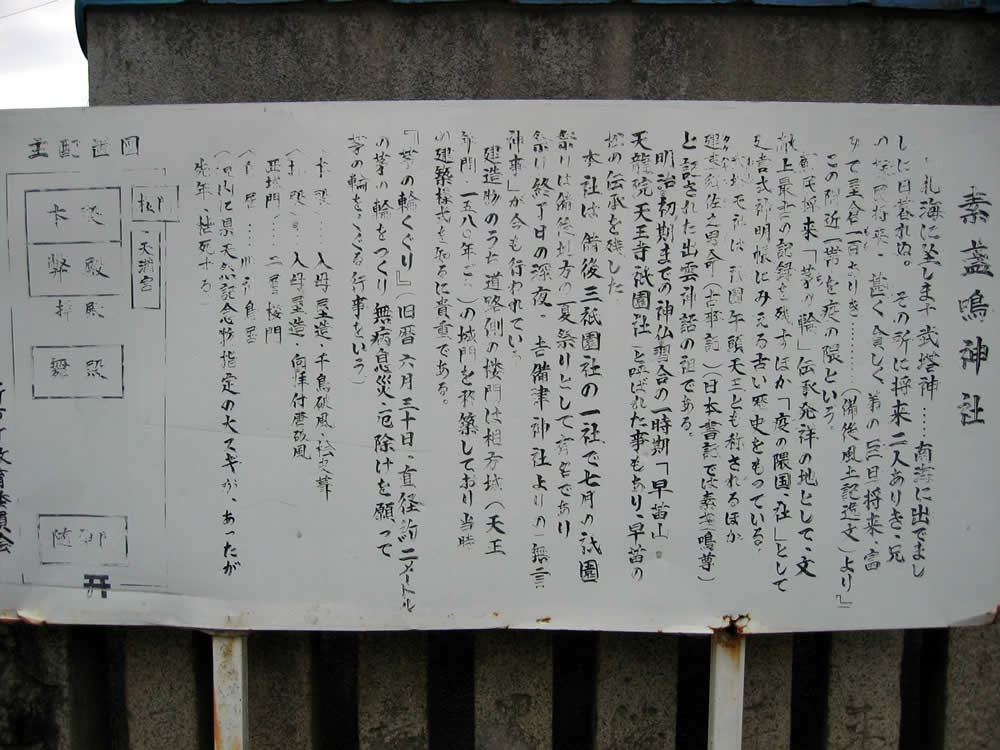 素盞嗚神社
北海に坐します武塔神……南海に出でまし
しに日暮れぬ。その所に将来二人ありき、兄
の蘇民将来、甚く貧しく弟の巨旦将来、富
みて屋倉一百ありき……(備後風土記逸文)より』
この附近一帯を疫の隈という。
蘇民将来「茅の輪」伝承発祥の地として、文
献上最古の記録を残すほか「疫の隈国、社」として
延喜式神明帳にみえる古い歴史をもっている。
は祇園牛頭天王とも称されるほか
建速須佐之男命(古事記)(日本書記では素盞鳴尊)
と記された出雲神話の祖である。
明治初期までの神仏習合の一時期「早苗山
天龍院天王寺祇園社」と呼ばれた事もあり、早苗の
松の伝承を残した
本社は備後三祇園社の一社で七月の祇園
祭りは備後地方の夏祭りとして有名であり
祭り終了日の深夜、吉備津神社よりの「無言
神事」が今も行われている
建造物のうち道路側の楼門は相方城(天王
年間一五八〇年ごろ)の城門を移築しており当時
の建築様式を知るに貴重である。
『茅の輪くぐり』(旧暦六月三十日、直径約二メートル
の茅の輪をつくり無病息災・厄除けを願って
茅の輪をくぐる行事をいう)
本殿……入母屋造、千鳥破風
拝殿……入母屋造、向拝付唐破風
西城門……二層楼門
(境内に県天然記念物指定の大スギが、あったが
先年、枯死する)
建配造図
本殿
幣殿
拝殿
舞殿
天満宮
随
教育委員会